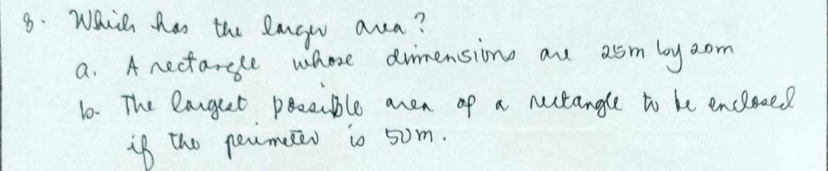 8. Which has the larger area?
a. A rectangle whose dimensions are 25m by 20m
b. The largest possible area of a rectangle to be enclosed
if the perimeter is 50m.